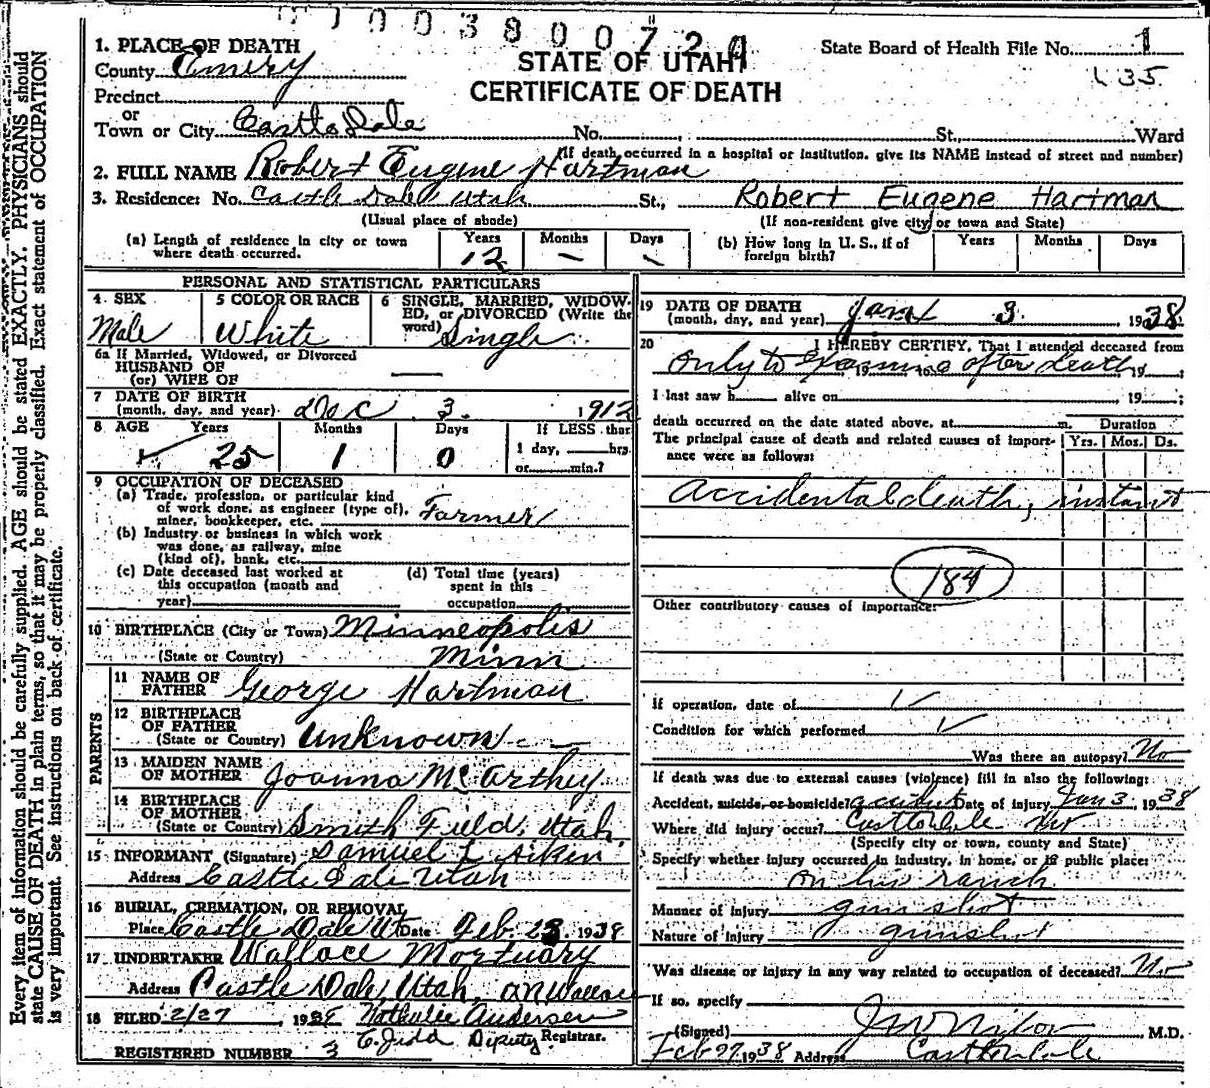 7 0 0 3 8 0 0 7 2 4
STATE OF UTAH
CERTIFICATE OF DEATH
State Board of Health File No. 1
35
1. PLACE OF DEATH
County Emery
Precinct
or
Town or City Castle Dale No. St. Ward
(If death occurred in a hospital or institution, give its NAME instead of street and number)
2. FULL NAME Robert Eugene Hartman
3. Residence: No. Castle Dale Utah St., Robert Eugene Hartman
(Usual place of abode) (If non-resident give city or town and State)
(a) Length of residence in city or town where death occurred. Years 12 Months – Days –
(b) How long in U. S., if of foreign birth? Years Months Days
PERSONAL AND STATISTICAL PARTICULARS
4 SEX Male
5 COLOR OR RACE White
6 SINGLE, MARRIED, WIDOWED, or DIVORCED (Write the word) Single
6a If Married, Widowed, or Divorced
HUSBAND OF
(or) WIFE OF —
7 DATE OF BIRTH
(month, day, and year) Dec 3. 1912
8 AGE Years 25 Months 1 Days 0 If LESS than 1 day, hrs. or min.?
9 OCCUPATION OF DECEASED
(a) Trade, profession, or particular kind of work done, as engineer (type of), miner, bookkeeper, etc. Farmer
(b) Industry or business in which work was done, as railway, mine (kind of), bank, etc.
(c) Date deceased last worked at this occupation (month and year)
(d) Total time (years) spent in this occupation
10 BIRTHPLACE (City or Town) Minneopolis
(State or Country) Minn
PARENTS
11 NAME OF FATHER George Hartman
12 BIRTHPLACE OF FATHER
(State or Country) Unknown
13 MAIDEN NAME OF MOTHER Joanna McArthey
14 BIRTHPLACE OF MOTHER
(State or Country) Smith Field, Utah
15 INFORMANT (Signature) Samuel L Aiken
Address Castle Dale Utah
16 BURIAL, CREMATION, OR REMOVAL
Place Castle Dale Ut Date Feb. 23, 1938
17 UNDERTAKER Wallace Mortuary
Address Castle Dale, Utah,
18 FILED 2/27
Andersen
Deputy Registrar.
REGISTERED NUMBER 3
19 DATE OF DEATH
(month, day, and year) Jan 3 1938
20 I HEREBY CERTIFY, That I attended deceased from
only to examine after death
I last saw h alive on , 19 ;
death occurred on the date stated above, at m.
The principal cause of death and related causes of importance were as follows:
Duration
Yrs. Mos. Ds.
Accidental death, instant
184
Other contributory causes of importance:
If operation, date of
Condition for which performed
Was there an autopsy? No
If death was due to external causes (violence) fill in also the following:
Accident, suicide, or homicide? accident Date of injury Jan 3, 1938
Where did injury occur? Castle Dale Ut
(Specify city or town, county and State)
Specify whether injury occurred in industry, in home, or in public place:
on his ranch
Manner of injury gun shot
Nature of injury gunshot
Was disease or injury in any way related to occupation of deceased? No
If so, specify
(Signed) J W Nixon M.D.
Feb 27 1938 Address Castle Dale
Every item of information should be carefully supplied. AGE should be stated EXACTLY. PHYSICIANS should
state CAUSE OF DEATH in plain terms, so that it may be properly classified. Exact statement of OCCUPATION
is very important. See instructions on back of certificate.